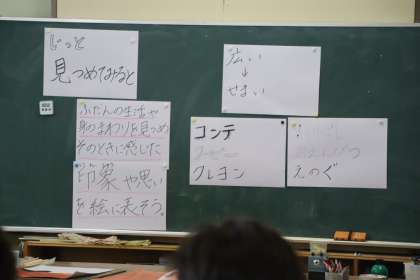 じっと
見つめてみると
ふだんの生活や
身のまわりを見つめ
そのときに感じた
印象や思い
を絵に表そう。
広い
↓
せまい
コンテ
クレヨン
えのぐ